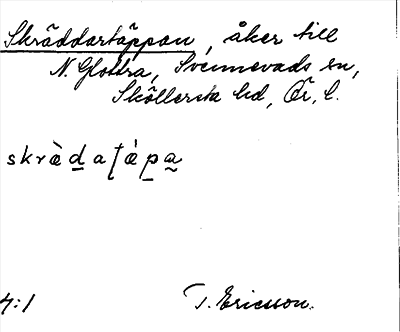 Skräddartäppan, åker till
N. Glottra, Svennevads sn,
Sköllersta hd, Ör. l.
skrædaʈæpa
4:1
T. Ericsson.